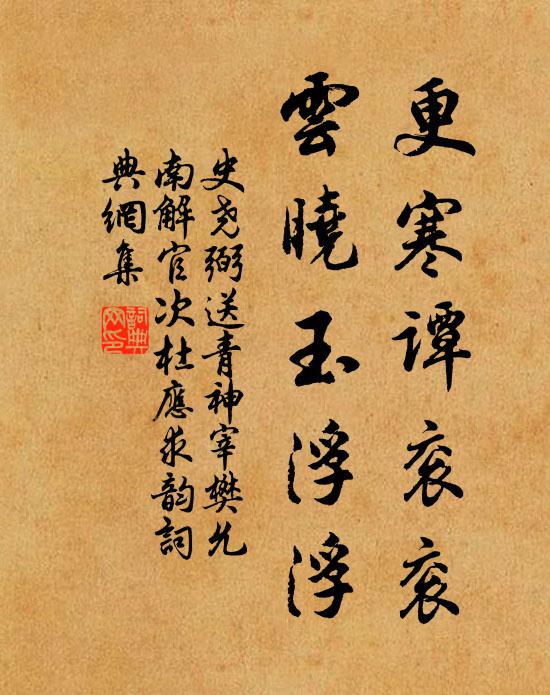 更寒譚衮衮
雲曉玉浮浮
史尧弼送青神宰樊允
南解官次杜應求韵詞
典網集
詞典
网印